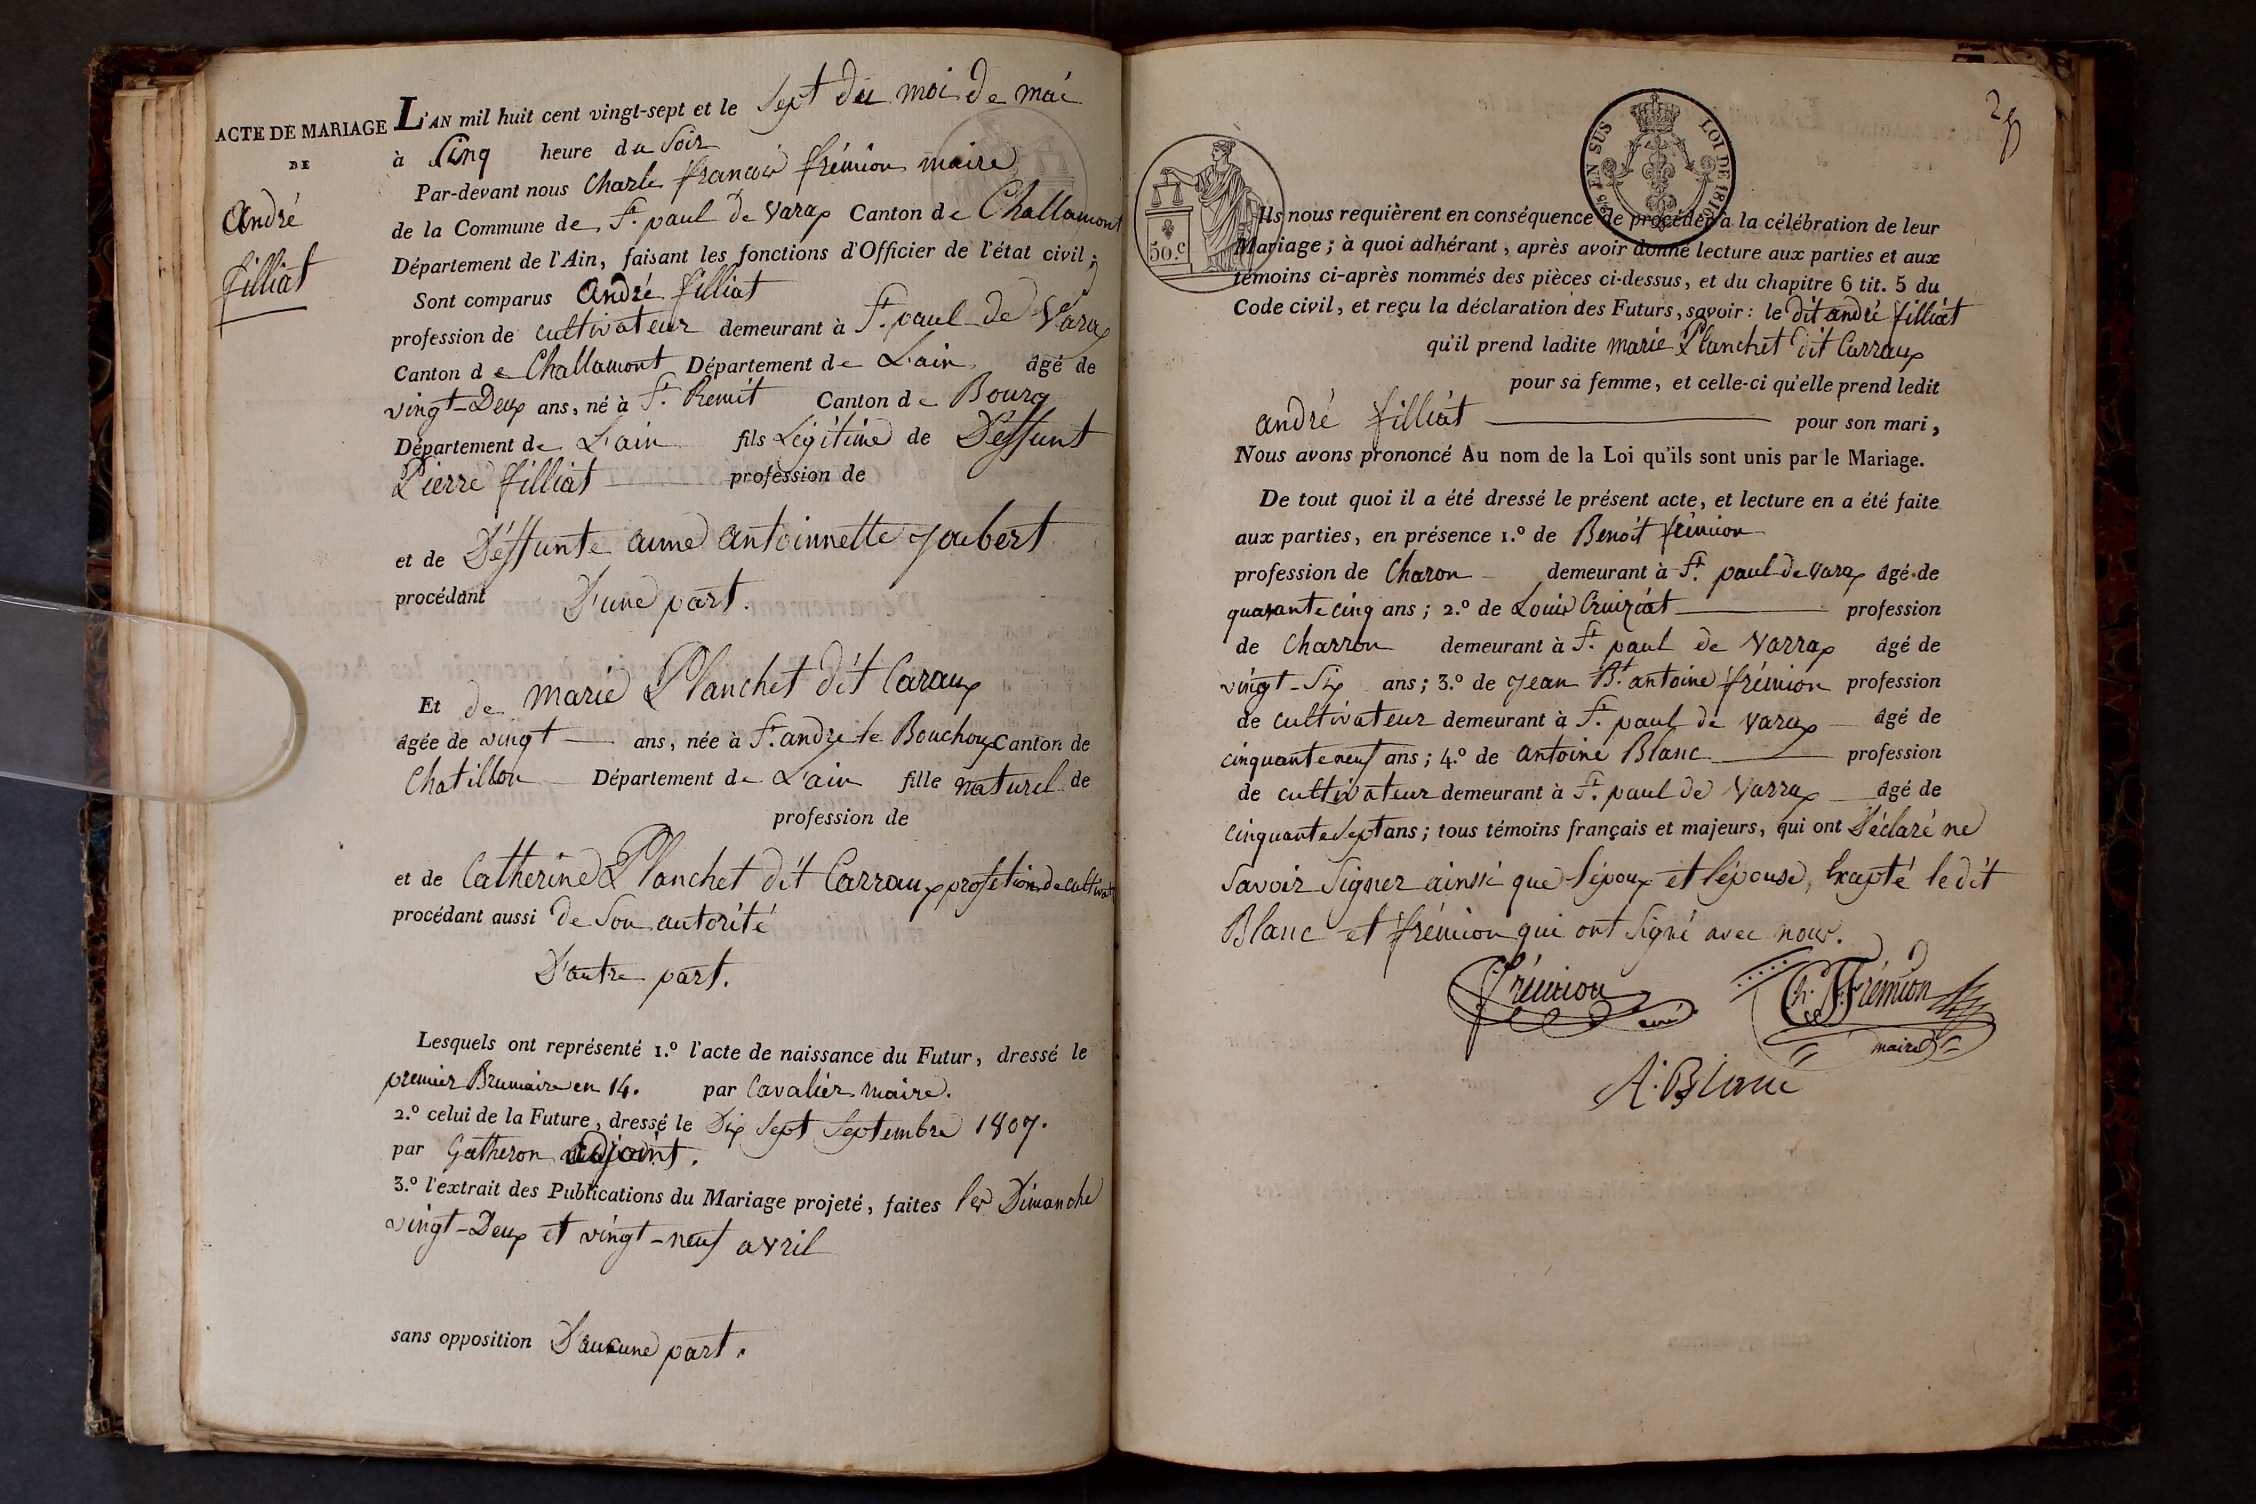 ACTE DE MARIAGE
DE
André
filliat
L'AN mil huit cent vingt-sept et le Sept du moi de mai
à Cinq heure du Soir
Par-devant nous Charle françois frémion maire
de la Commune de St. paul de Varax Canton de Challamont
Département de l'Ain, faisant les fonctions d'Officier de l'état civil;
Sont comparus André filliat
profession de cultivateur demeurant à St. paul de Varax
Canton de Challamont Département de L'ain âgé de
vingt-Deux ans, né à St. Remit Canton de Bourg
Département de L'ain fils Légitime de Déffunt
Pierre filliat profession de
et de Déffunte anne antoinnette Joubert
procédant D'une part.
Et de marie Planchet dit Caraux
âgée de vingt ans, née à St. andre le Bouchoux Canton de
Chatillon Département de L'ain fille naturel de
profession de
et de Catherine Planchet dit Carraux profetion de cultivat
procédant aussi de Son autorité
D'autre part.
Lesquels ont représenté 1.º l'acte de naissance du Futur, dressé le
premier Brumaire en 14. par Cavalier maire.
2.º celui de la Future, dressé le Dix Sept Septembre 1807.
par Gatheron adjoint.
3.º l'extrait des Publications du Mariage projeté, faites les Dimanche
vingt-Deux et vingt-neuf avril
sans opposition D'aucune part.
EN SUS
LOI DE 1816
50.c
Ils nous requièrent en conséquence de procéder à la célébration de leur
Mariage; à quoi adhérant, après avoir donné lecture aux parties et aux
témoins ci-après nommés des pièces ci-dessus, et du chapitre 6 tit. 5 du
Code civil, et reçu la déclaration des Futurs, savoir: le dit andré filliat
qu'il prend ladite marie Planchet dit Carraux
pour sa femme, et celle-ci qu'elle prend ledit
andré filliat pour son mari,
Nous avons prononcé Au nom de la Loi qu'ils sont unis par le Mariage.
De tout quoi il a été dressé le présent acte, et lecture en a été faite
aux parties, en présence 1.º de Benoit frémion
profession de Charon demeurant à St. paul de Varax âgé de
quarante cinq ans; 2.º de Louis Cruiziat profession
de Charron demeurant à St. paul de Varrax âgé de
vingt-Six ans; 3.º de Jean Bt. antoine frémion profession
de cultivateur demeurant à St. paul de Varax âgé de
cinquante neuf ans; 4.º de antoine Blanc profession
de cultivateur demeurant à St. paul de Varrax âgé de
cinquante Sept ans; tous témoins français et majeurs, qui ont Déclaré ne
Savoir Signer ainsi que l'époux et l'épouse, Excepté le dit
Blanc et frémion qui ont Signé avec nous.
frémion
Ch. F. Frémion
maire
A. Blanc